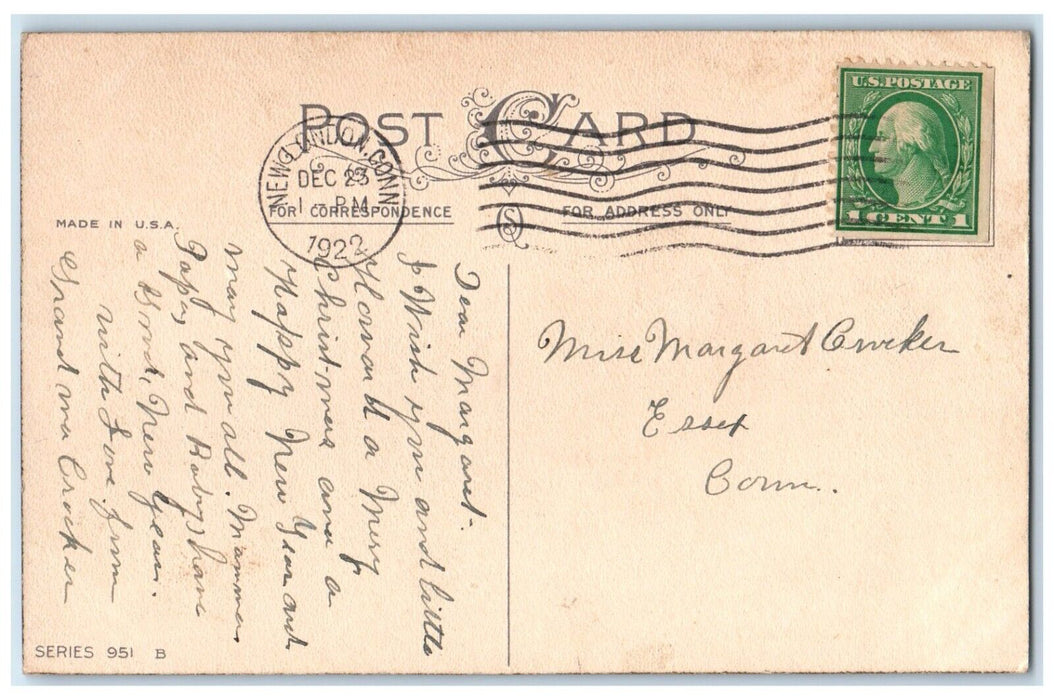 POST CARD
NEW LONDON, CONN
DEC 23
1 - PM
1922
U.S. POSTAGE
1 CENT 1
FOR CORRESPONDENCE
FOR ADDRESS ONLY
MADE IN U.S.A.
Dear Margaret.
I Wish you and little
Howard a Mery
Christmas and a
Happy New Year and
may you all. Mamma,
Papa, and Baby, have
a Good, New year.
with Love from
Grand ma Crocker
Miss Margaret Crocker
Essex
Conn.
SERIES 951 B